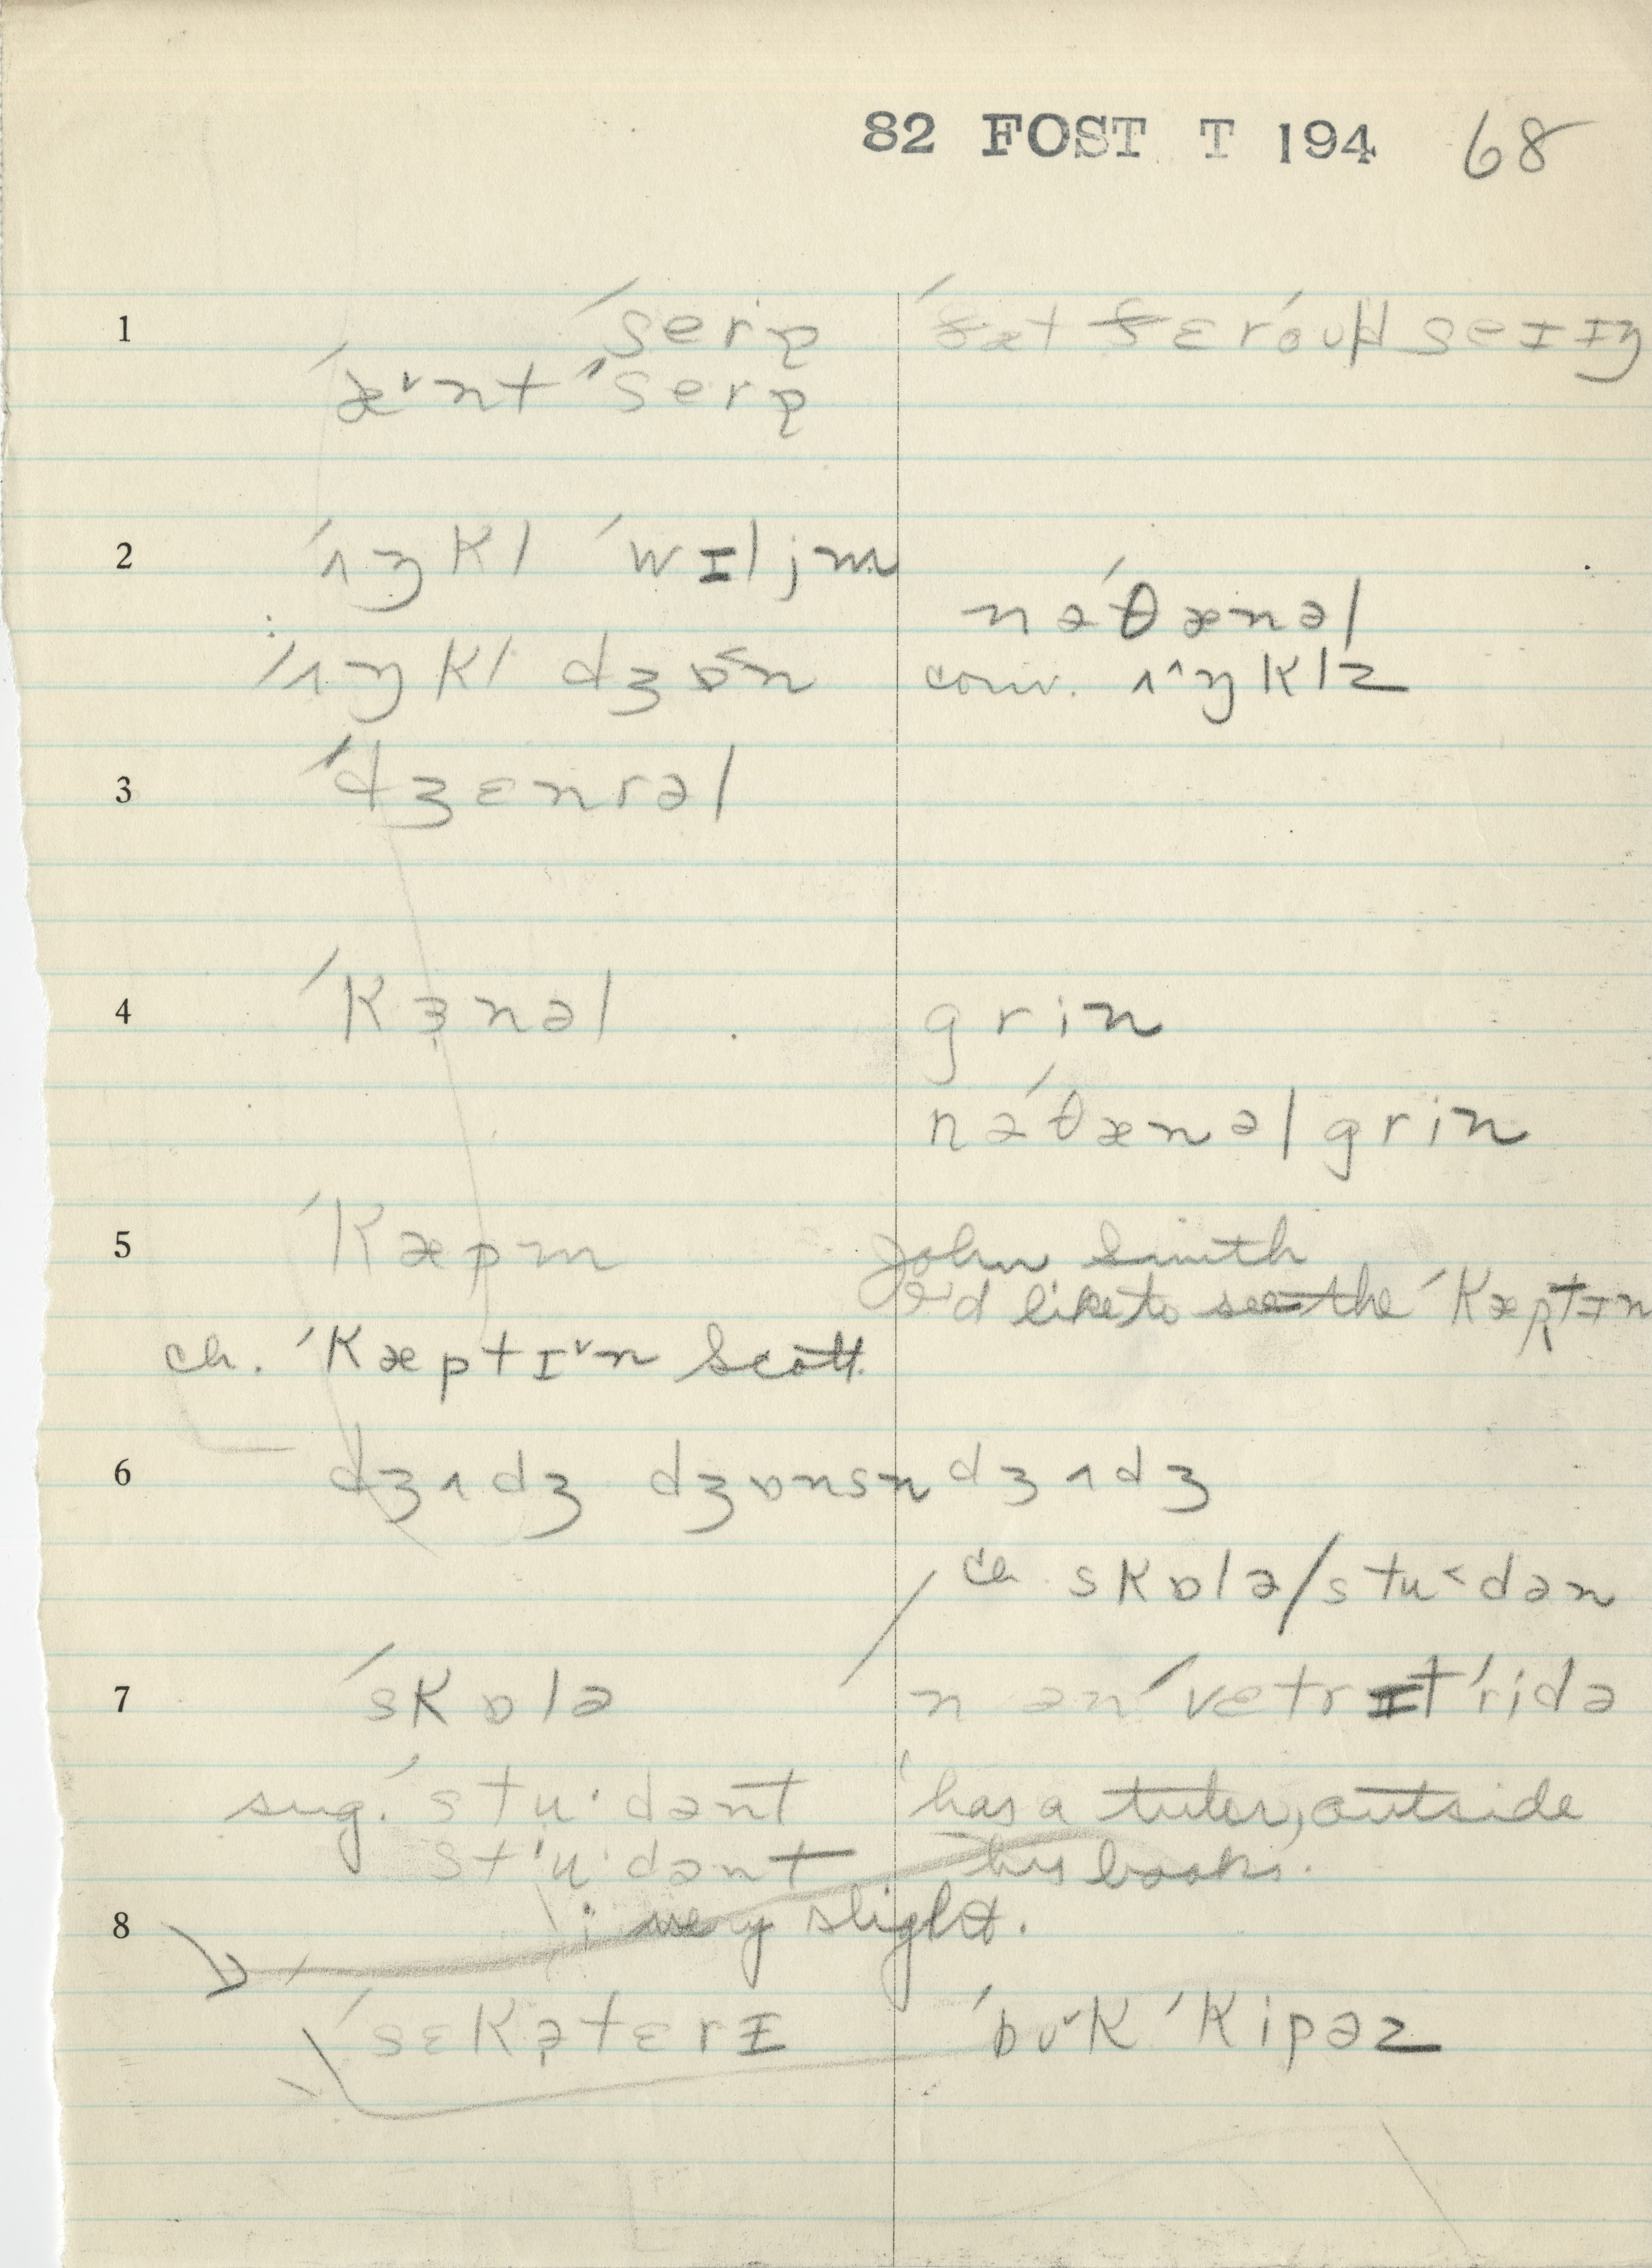 82 FOST T 194 68
1 ˈserə
ˈæ˅nt ˈserə
2 ˈʌŋkl ˈwɪljm
nəˈθænəl
ˈʌŋkl dʒɒ˂n conv. ʌ^ŋklz
3 ˈdʒɛnrəl
4 ˈkɜnəl grin
nəˈθænəl grin
5 ˈkæpm John Smith
I'd like to see the ˈkæptɪn
ch. ˈkæptɪ˅n Scott
6 dʒʌdʒ dʒɒnsn dʒʌdʒ
ch skɒlə/stu˂dən
7 ˈskɒlə n ən ˈvɛtrɪt ˈridə
sug. ˈstu·dənt has a tuter, outside
stˈu·dənt his books.
i very slight.
8
ˈsɛkətɛrɪ ˈbʊ˅k ˈkipəz